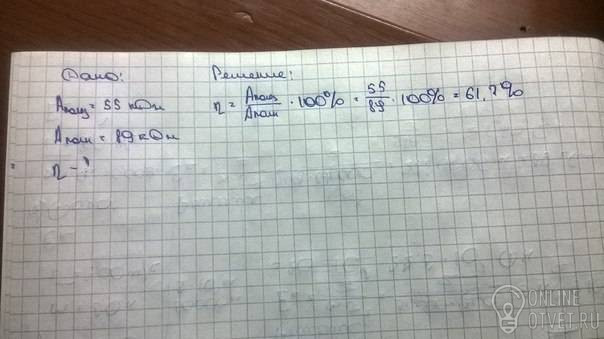 Дано:
Aполз = 55 кДж
Aполн = 89 кДж
η - ?
Решение:
η = Aполз / Aполн · 100% = 55 / 89 · 100% = 61,7%
ONLINE
OTVET.RU